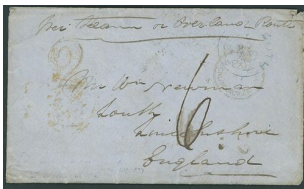 Per Steam or Overland Route
Mr Wm Newman
Louth
Lincolnshire
England
6